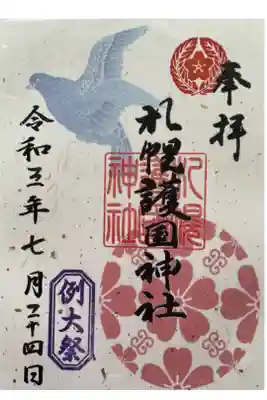 奉拝
札幌護国神社
令和三年七月二十四日
例大祭
札幌
神社